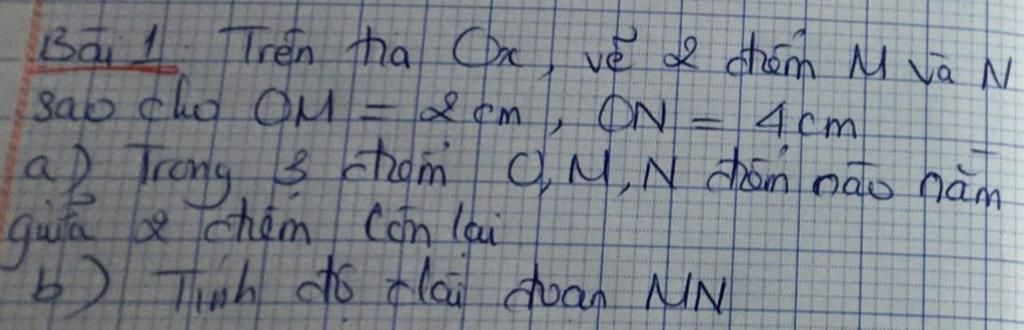 Bài 1. Trên tia Ox, vẽ 2 điểm M và N
sao cho OM = 2 cm, ON = 4 cm
a) Trong 3 điểm O, M, N điểm nào nằm
giữa 2 điểm còn lại
b) Tính độ dài đoạn MN